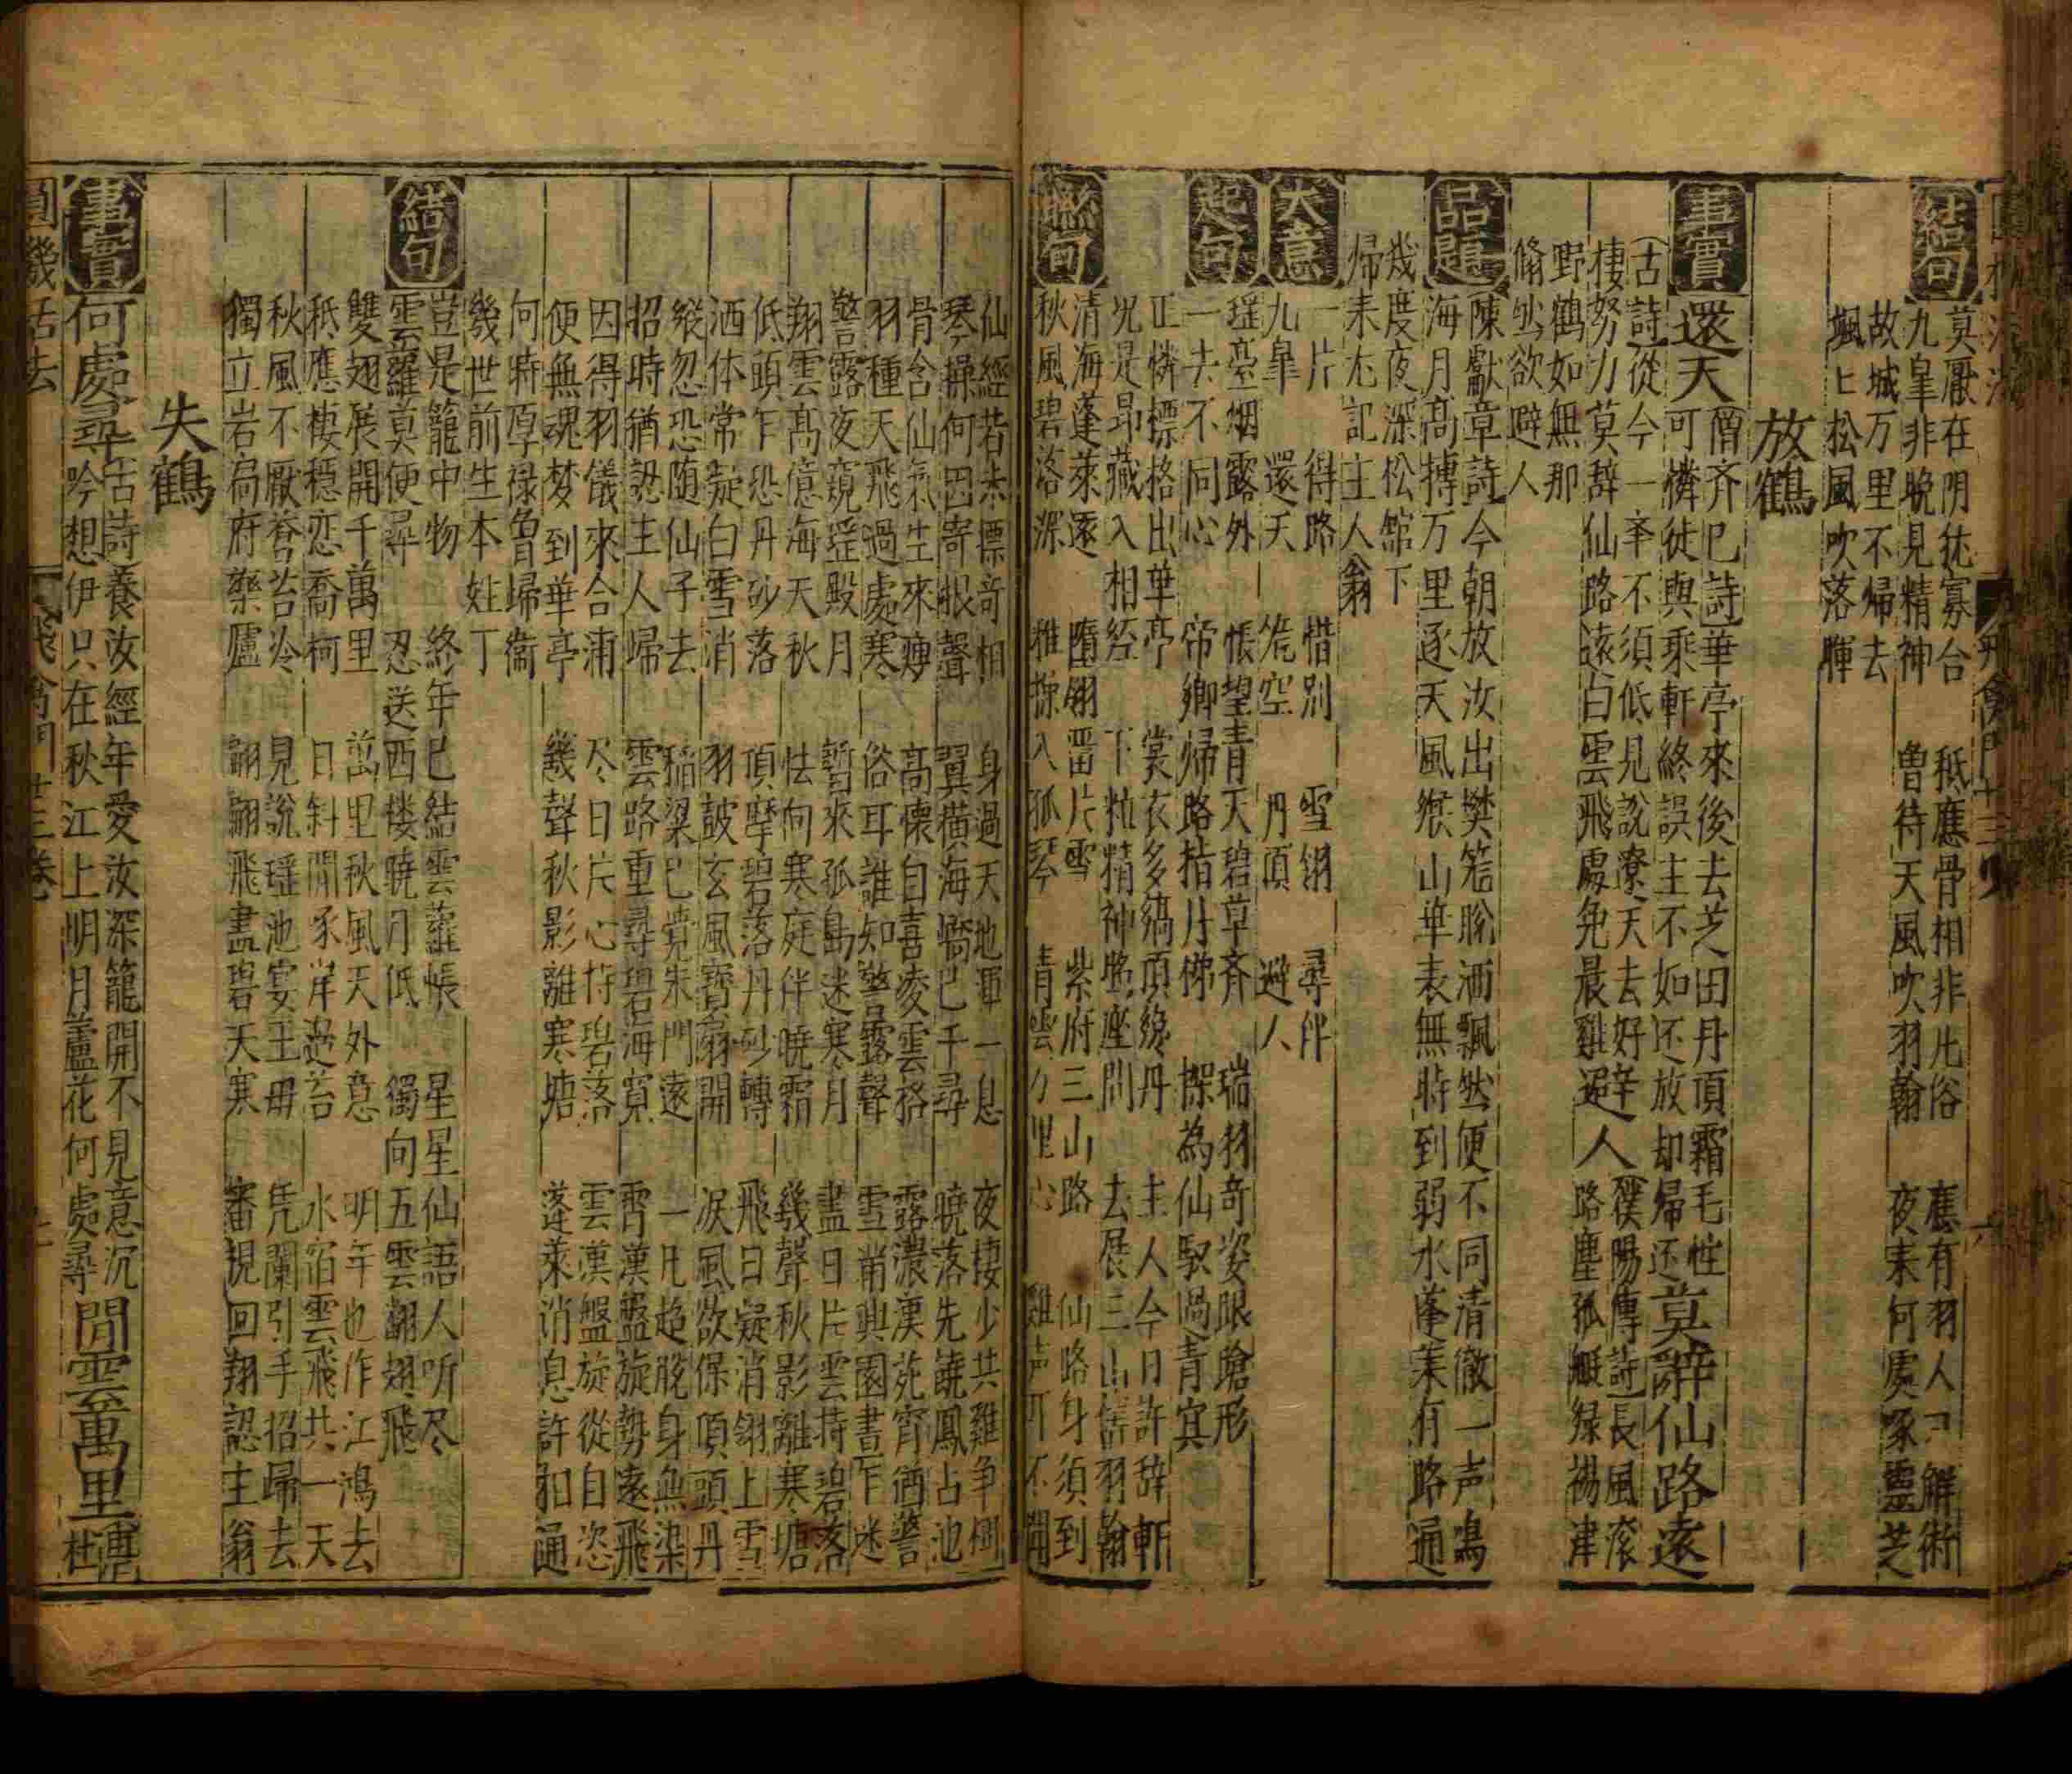 結句
莫厭在陰徒寡合 秪應骨相非凡俗 應有羽人口解術
九皐非晚見精神 曽待天風吹羽翰 夜来何處啄靈芝
故城万里不帰去
颯〻松風吹落暉
放鶴
事實 還天
僧齊已詩華亭來後去芝田丹頂霜毛性
可憐徒與乘軒終誤主不如还放却帰还
莫辭仙路遠
古詩從今一㪯不須低見說遼天去好辛
棲努力莫辞仙路遠白雲飛處免晨雞
避人
濮陽傳詩長風滚
路塵孤艇緑楊津
野鶴如無那
翛然欲避人
品題
陳獻章詩今朝放汝出樊笼脫洒飄然便不同清徹一声鳴
海月髙搏万里逐天風緱山華表無時到弱水蓬莱有路通
幾度夜深松舘下
帰来尤記主人翁
大意
一片 得路 惜别 雪翎 尋伴
九皐 還天 笼空 丹頂 避人
起句
瑶臺烟露外 悵望青天碧草齊 瑞羽奇姿眼蹌形
一去不同心 帝鄉帰路指丹梯 樑為仙馭過青㝠
正憐標格出華亭 裳衣多縞頂緣丹 主人今日許辞軒
况是昻藏入相经 下粒精神眂座間 去展三山舊羽翰
聯句
清海蓬萊逐 墮翎畱片雪 紫府三山路 仙路身須到
秋風碧落深 雅掠入孤琴 青雲万里心 雞声可不聞
仙經若未標奇相 身過天地渾一息 夜棲少共雞争樹
琴操何因寄恨聲 翼橫海嶠已千尋 曉落先饒鳳占池
骨含仙氣生來瘦 高懐自喜凌雲格 露濃漢苑宵猶警
羽種天飛過處寒 俗耳誰知警露聲 雪滿興園晝乍迷
警露夜窺瑶殿月 暫來孤島迷寒月 盡日片雲持碧落
翔雲髙億海天秋 怯向寒庭伴曉霜 幾聲秋影離寒塘
低頭乍恐丹砂落 頂摩碧落丹砂轉 飛日疑消翎上雪
洒体常疑白雪消 羽皷玄風寳扇開 淚風欲保頂頭丹
縱忽恐随仙子去 稲粱已覺朱門遠 一凡超脫身無染
招時猶認主人歸 雲路重尋碧海寬 霄漢盤旋勢遠飛
因得羽儀來合浦 尽日片心持碧落 雲漢盤旋從自恣
便無魂梦到華亭 幾聲秋影離寒塘 蓬萊消息許相通
何時厚禄曽歸衞
幾世前生本姓丁
結句
豈是籠中物 終年已結雲蘿帳 星星仙語人听尽
雲蘿莫便尋 忍送西楼曉月低 獨向五雲翻翅飛
雙翅展開千萬里 萬里秋風天外意 明年也作江鴻去
秪應棲穏恋喬柯 日斜閒啄岸邉苔 水宿雲飛共一天
秋風不厭眷苔冷 見說瑶池宴王毋 凭闌引手招歸去
獨立岩扃府藥廬 翩翩飛盡碧天寒 審視回翔認主翁
失鶴
事實 何處尋
古詩養汝經年愛汝深籠開不見意沉
吟想伊只在秋江上明月蘆花何處尋
閒雲萬里
唐
杜
圓機活法 飛禽門 廿三卷